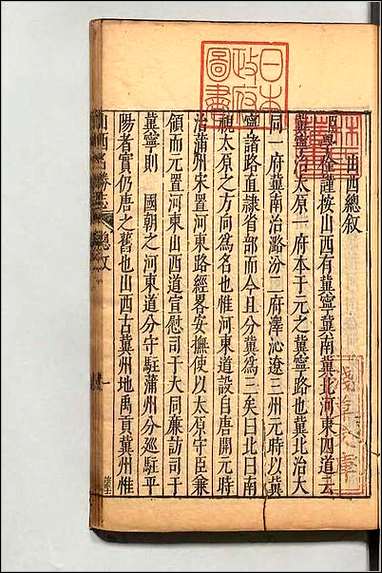 日本
政府
圖書
山西總敘
學佺謹按山西有冀寧冀南冀北河東四道云
冀寧治太原一府本于元之冀寧路也冀北治大
同一府冀南治潞汾二府澤沁遼三州元時以冀
寧諸路直隸省部而今且分冀為三矣曰北曰南
視太原之方向為名也惟河東道設自唐開元時
治蒲州宋置河東路經畧安撫使以太原守臣兼
領而元置河東山西道宣慰司于大同廉訪司于
冀寧則　國朝之河東道分守駐蒲州分巡駐平
陽者實仍唐之舊也山西古冀州地禹貢冀州惟
山西名勝志 總敘 一